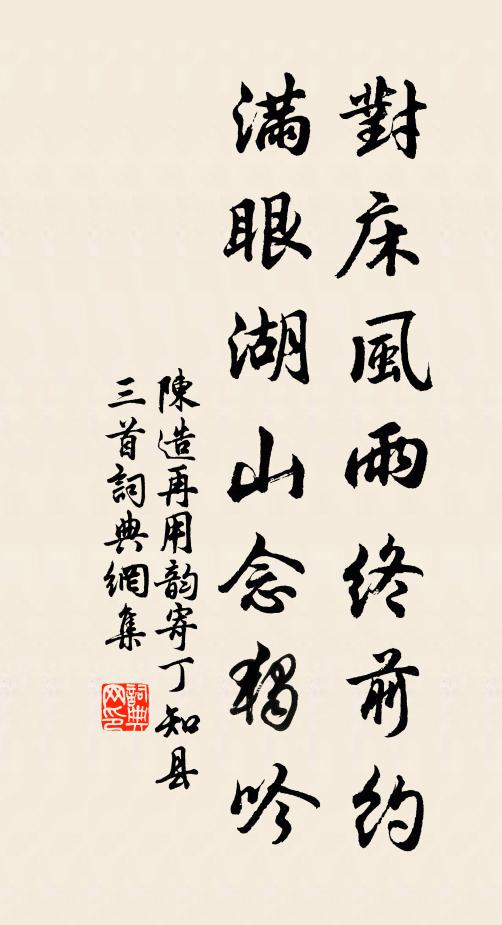 對床風雨終前約
滿眼湖山念獨吟
陳造再用韵寄丁知县
三首詞典網集
詞典
网印